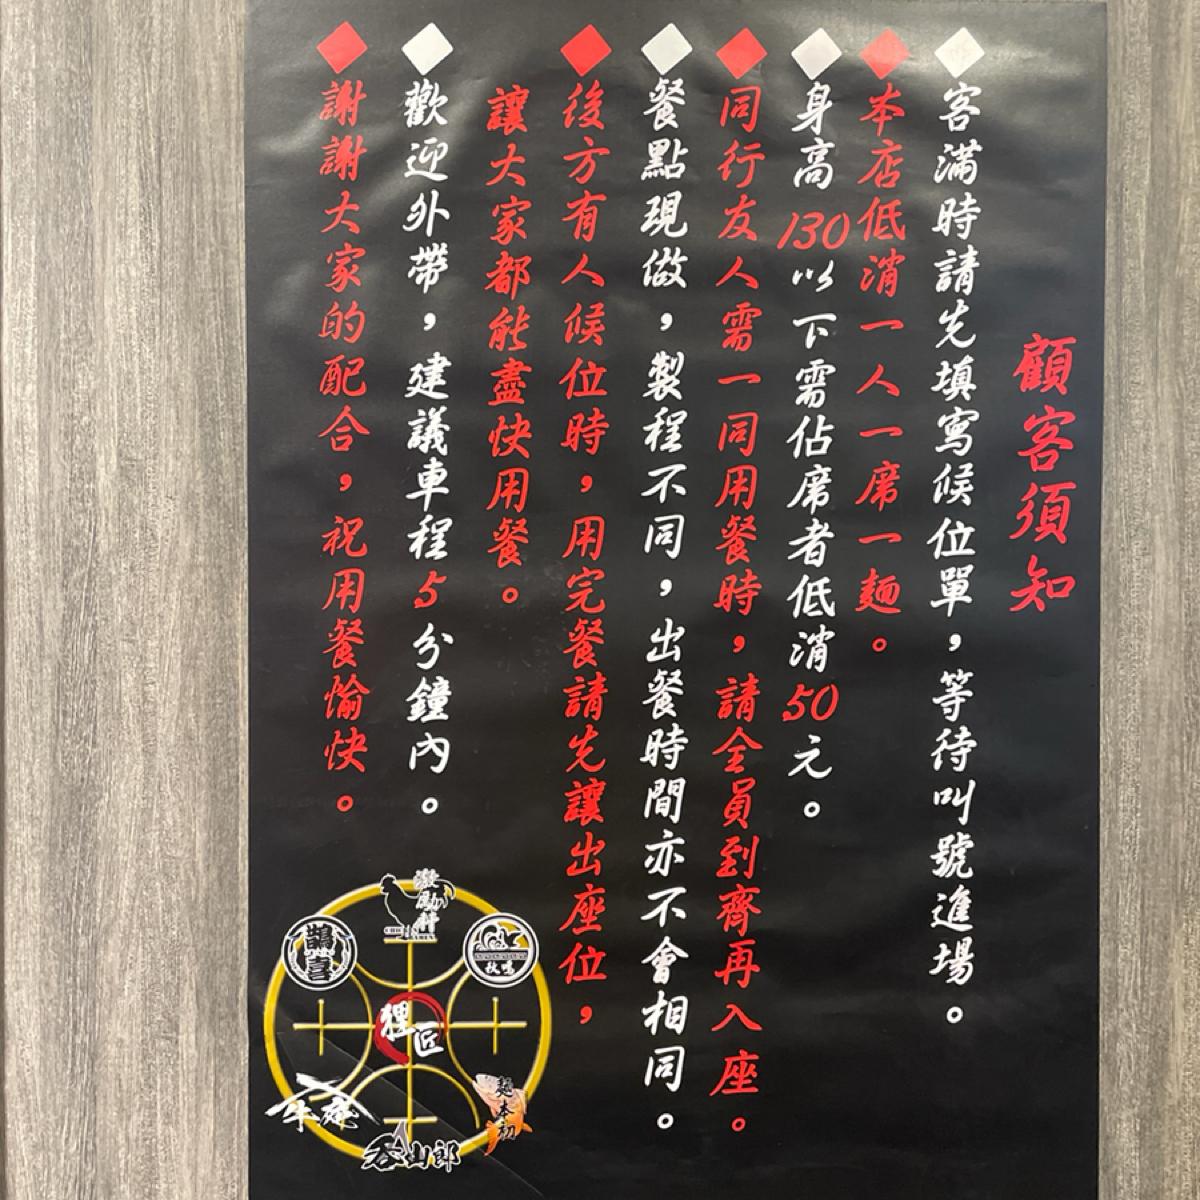 顧客須知
客滿時請先填寫候位單，等待叫號進場。
本店低消一人一席一麵。
身高130以下需佔席者低消50元。
同行友人需一同用餐時，請全員到齊再入座。
餐點現做，製程不同，出餐時間亦不會相同。
後方有人候位時，用完餐請先讓出座位，
讓大家都能盡快用餐。
歡迎外帶，建議車程5分鐘內。
謝謝大家的配合，祝用餐愉快。
激励軒
鵲喜
狸匠
牛庵
吞山郎
麵本初